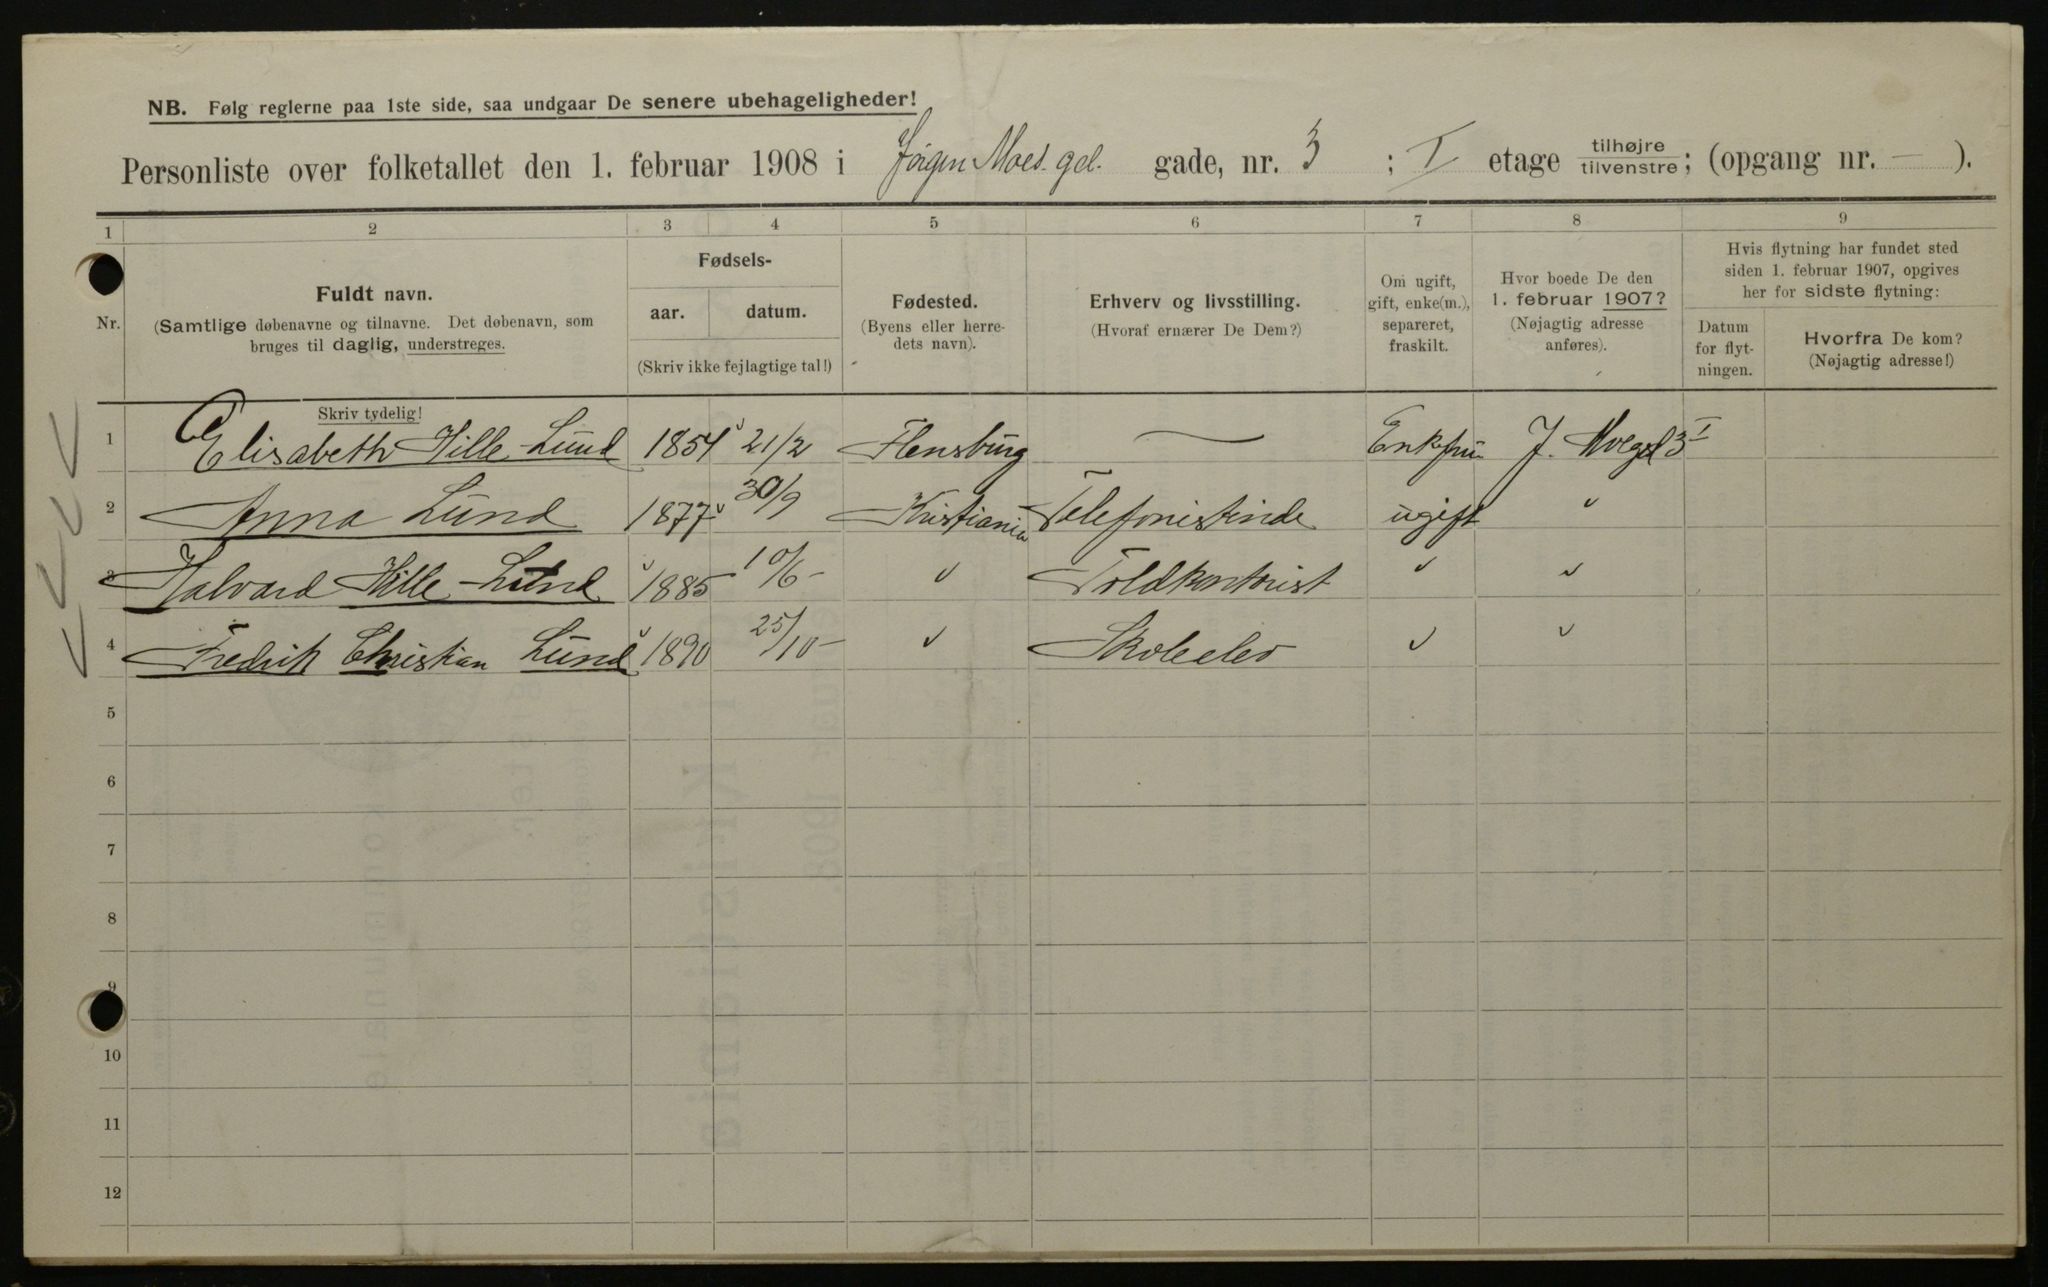 NB. Følg reglerne paa 1ste side, saa undgaar De senere ubehageligheder!
Personliste over folketallet den 1. februar 1908 i Jörgen Moes. gd. gade, nr. 3 ; I etage tilhøjre/tilvenstre; (opgang nr. — ).
1 2 3 4 5 6 7 8 9
Nr.
Fuldt navn.
(Samtlige døbenavne og tilnavne. Det døbenavn, som
bruges til daglig, understreges.
Fødsels-
aar. datum.
(Skriv ikke fejlagtige tal!)
Fødested.
(Byens eller herre-
dets navn).
Erhverv og livsstilling.
(Hvoraf ernærer De Dem?)
Om ugift,
gift, enke(m.),
separeret,
fraskilt.
Hvor boede De den
1. februar 1907?
(Nøjagtig adresse
anføres).
Hvis flytning har fundet sted
siden 1. februar 1907, opgives
her for sidste flytning:
Datum
for flyt-
ningen.
Hvorfra De kom?
(Nøjagtig adresse!)
Skriv tydelig!
1 Elisabeth Hille-Lund 1854 21/2 Flensburg — Enkefru J. Moegd 3 I
2 Anna Lund 1877 30/9 Kristiania Telefonistinde ugift "
3 Halvard Hille-Lund 1885 10/6 - " Toldkontorist " "
4 Fredrik Christian Lund 1890 25/10 - " Skoleelev " "
5
6
7
8
9
10
11
12